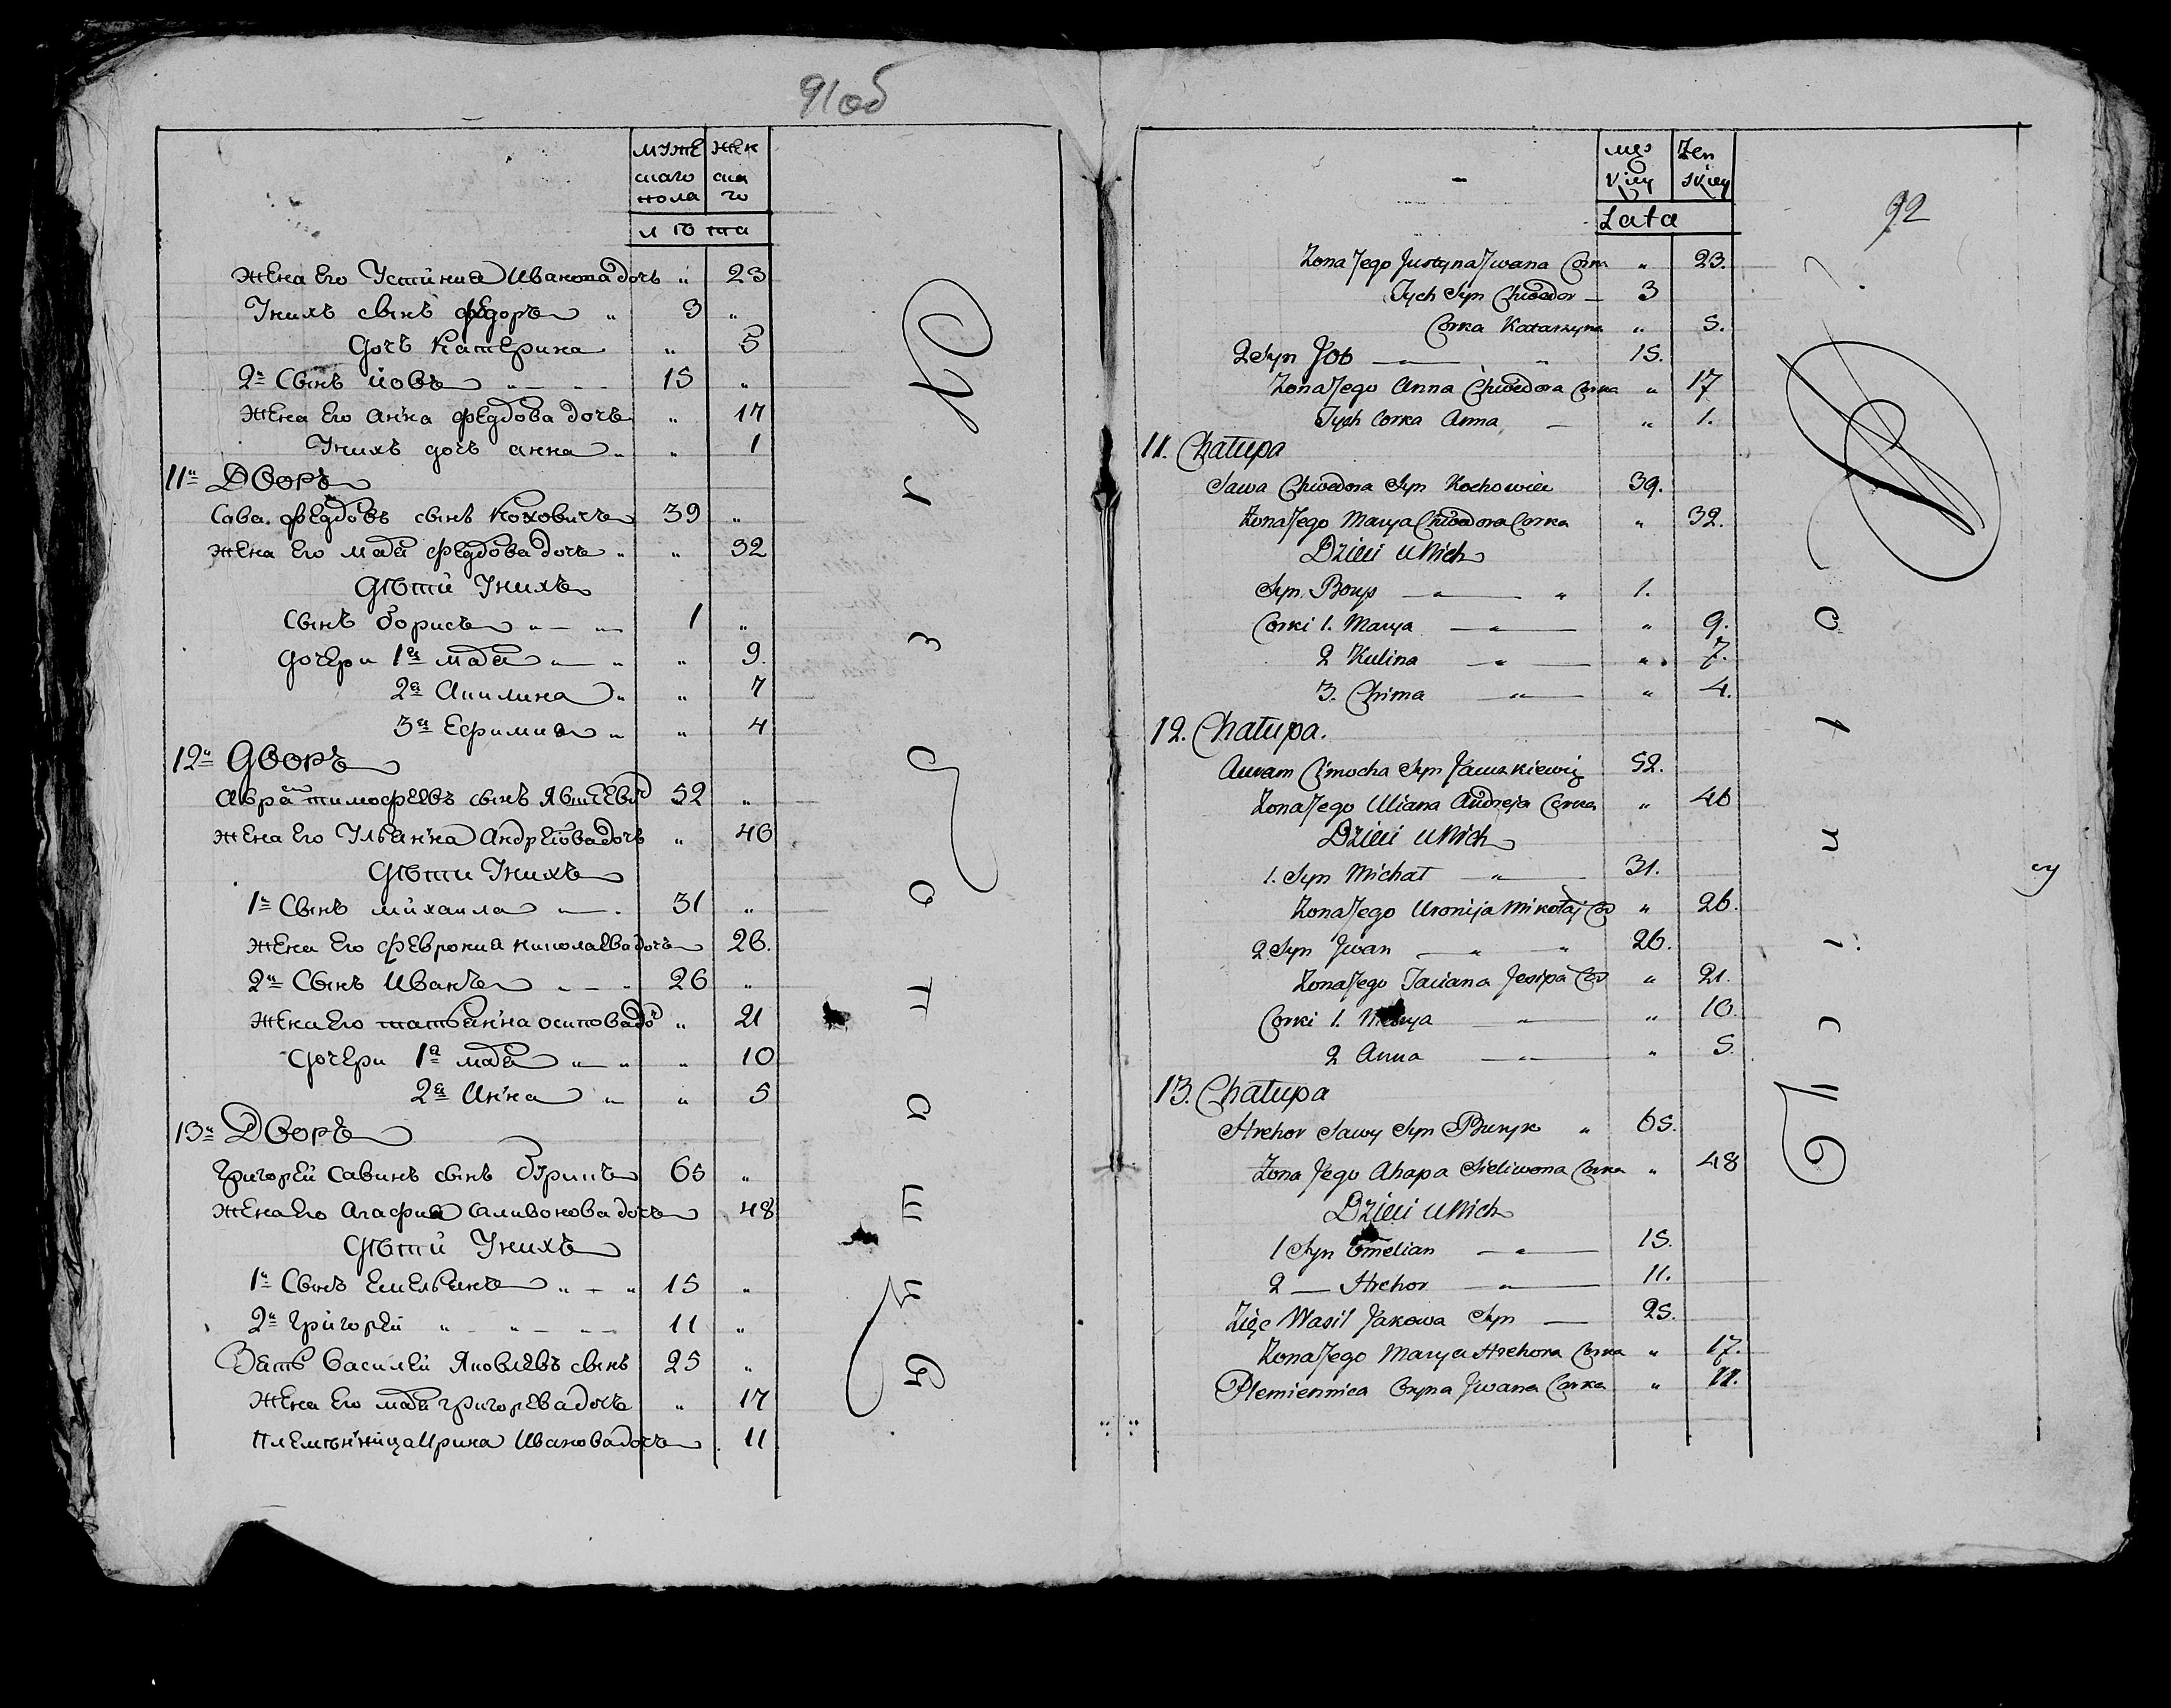 91об
муже скаго пола
жен ска го
лѣта
Жена Его Устиния Иванова дочь " 23
У нихъ сынъ Федоръ " 3 "
Дочь Катерина " 5
2й Сынъ Иовъ " 15 "
Жена Его Анна Федова дочь " 17
У нихъ дочь Анна " " 1
11й Дворъ
Сава Федовъ сынъ Коховичъ 39 "
Жена Его Марья Федова дочь " " 32
Дѣти У нихъ
Сынъ Борисъ " 1 "
Дочери 1я Марья " " 9.
2я Акилина " " 7
3я Ефимия " " 4
12й Дворъ
Аврам Тимофеевъ сынъ 52 "
Жена Его Ульянна Андреева дочь " 46
Дѣти У нихъ
1й Сынъ Михаила 31 "
Жена Его Феврония Николаева дочь 26.
2й Сынъ Иванъ 26 "
Жена Его Татьянна Осипова до " 21
Дочери 1я Марья " " 10
2я Анна " " 5
13й Дворъ
Григорей Савинъ сынъ Бурикъ 65 "
Жена Его Агафия Саливонова дочь 48
Дѣти У нихъ
1й Сынъ Емельянъ " 15 "
2й Григорей " 11 "
Зять Василей Яковлевъ сынъ 25 "
Жена Его Марья Григорева дочь " 17
Племянница Ирина Иванова дочь 11
92
męs kiey
Żen skiey
Lata
Żona Jego Justyna Jwana Corka " 23.
Tych Syn Chwedor — 3
Corka Katarzyna " 5.
2 Syn Job — " 15.
Żona Jego Anna Chwedora Corka " 17
Tych Corka Anna — " 1.
11. Chałupa
Sawa Chwedora Syn Kochowicz 39.
Żona Jego Marya Chwedora Corka " 32.
Dzieci u Nich
Syn Borys — " 1.
Corki 1. Marya — " 9.
2 Kulina — " 7.
3. Chima — " 4.
12. Chałupa.
Auram Cimocha Syn Jauszkiewicz 52.
Żona Jego Uliana Andreja Corka " 46
Dzieci u Nich
1. Syn Michał — 31.
Żona Jego Uronija Mikołaj Co " 26.
2 Syn Jwan — " 26.
Żona Jego Taciana Jesipa Co " 21.
Corki 1. Marya — " 10.
2 Anna — " 5.
13. Chałupa
Hrehor Sawy Syn Buryk " 65.
Żona Jego Ahapa Sieliwona Corka " 48
Dzieci u Nich
1 Syn Emelian — 15.
2 — Hrehor — 11.
Zięc Wasil Jakowa Syn — 25.
Żona Jego Marya Hrehora Corka " 17.
Plemiennica Oryna Jwana Corka " 11.